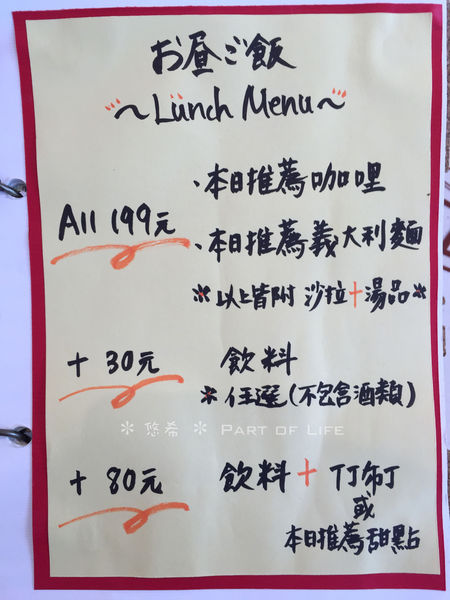 お昼ご飯
～Lunch Menu～
、本日推薦咖哩
All 199元
、本日推薦義大利麵
＊以上皆附 沙拉＋湯品＊
＋ 30元 飲料
＊任選(不包含酒類)
＊ 悠希 ＊ PART OF LIFE
＋ 80元 飲料＋丁布丁
或
本日推薦甜點